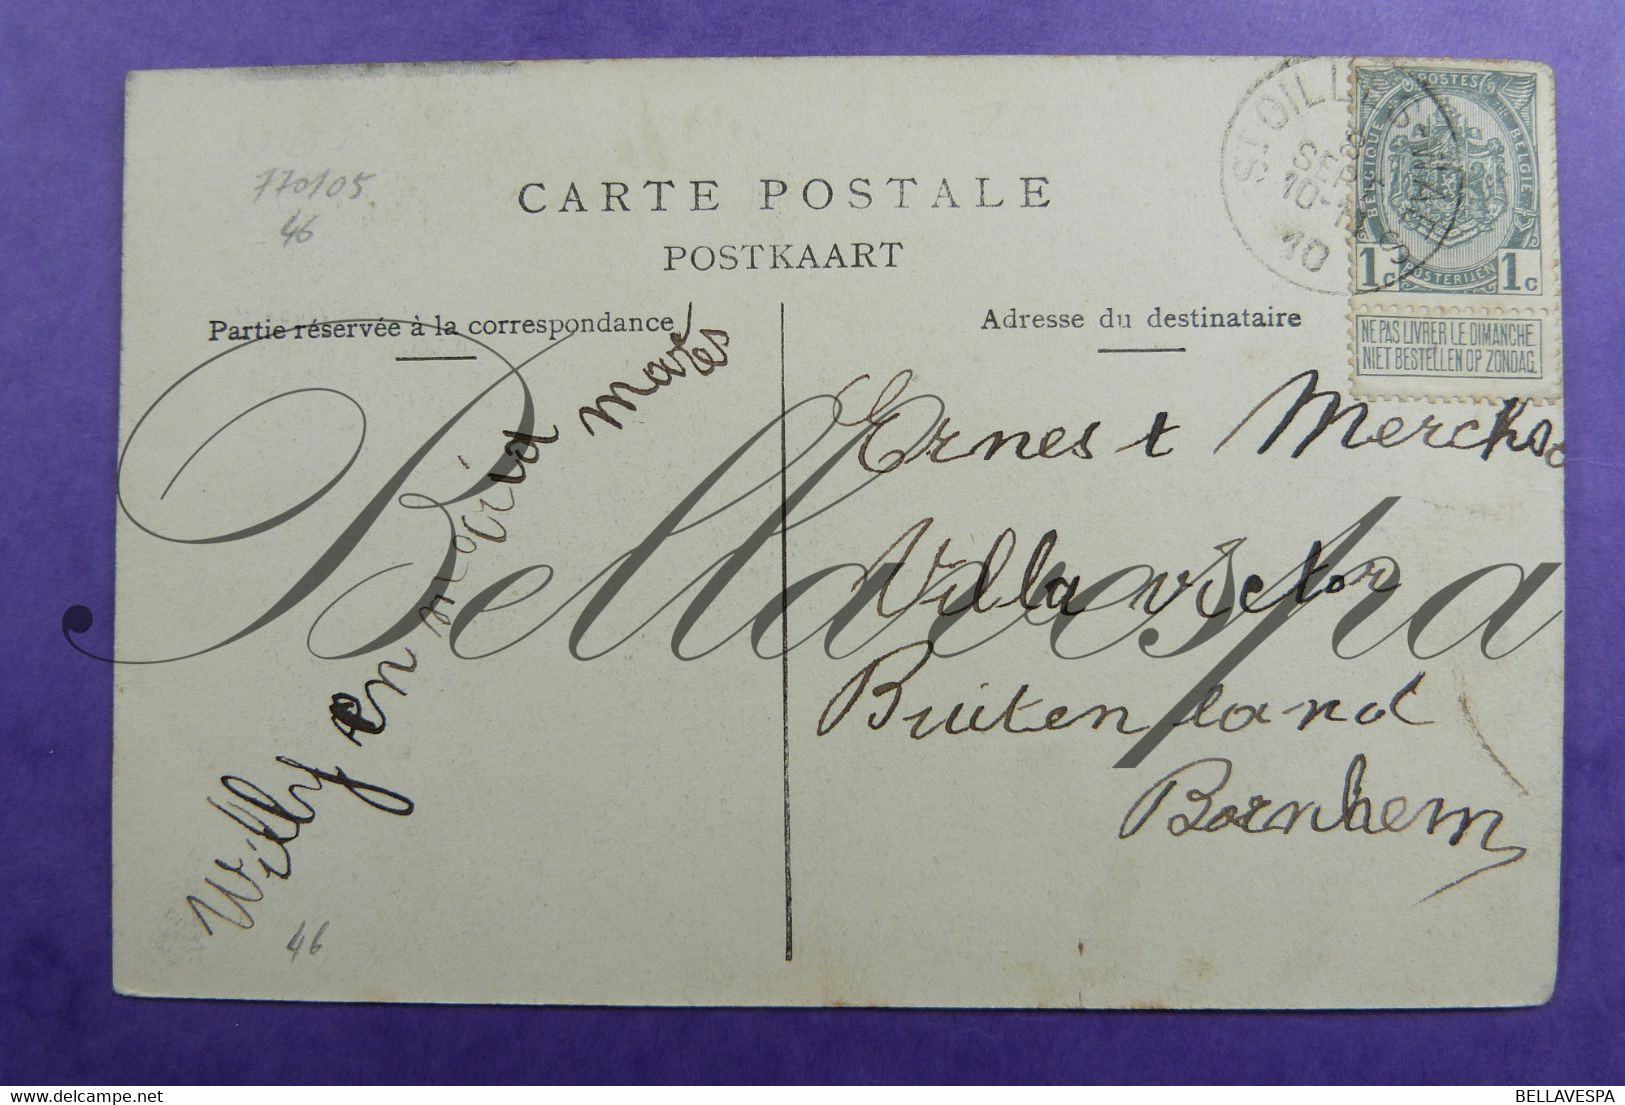 CARTE POSTALE
POSTKAART
Partie réservée à la correspondance
Adresse du destinataire
770105
46
POSTES
BELGIQUE
BELGIË
POSTERIJEN
1c 1c
NE PAS LIVRER LE DIMANCHE
NIET BESTELLEN OP ZONDAG
SEPT
10-11
10
Willy en maria
Ernest Merckx
Villa Victor
Buiten land
Bornhem
46
Bellavespa
BELLAVESPA